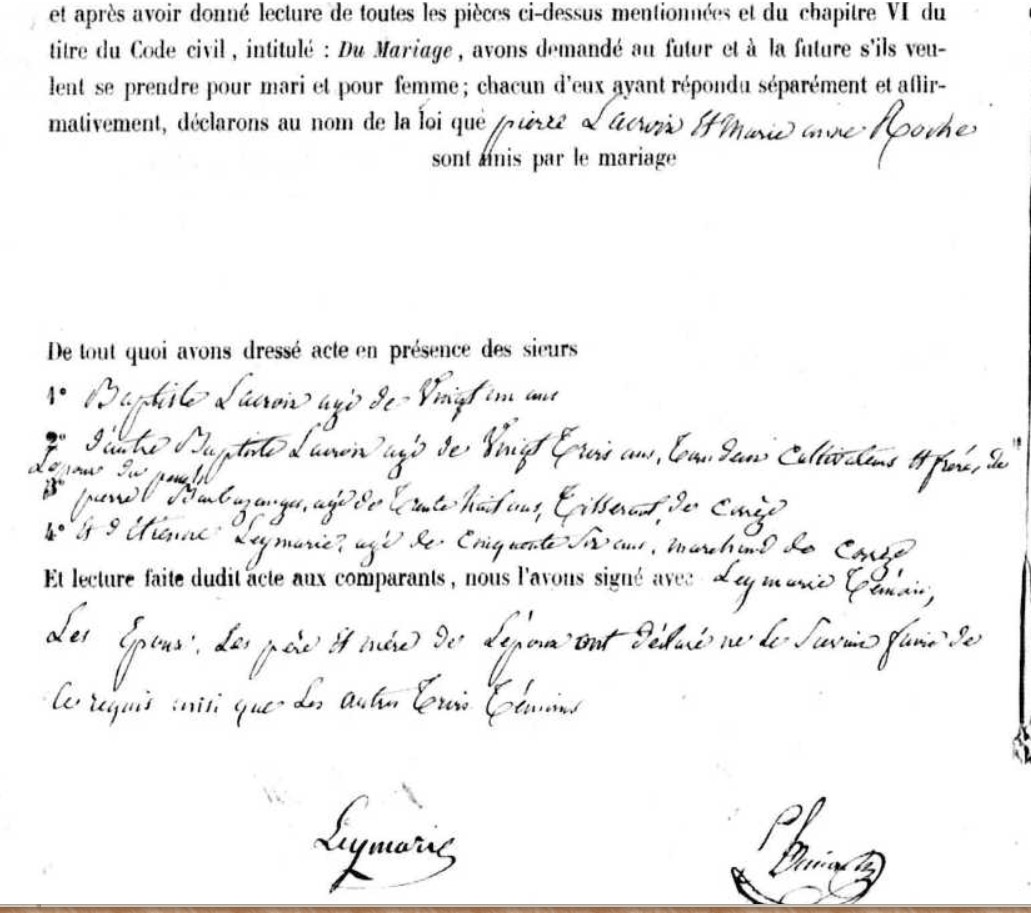 et après avoir donné lecture de toutes les pièces ci-dessus mentionnées et du chapitre VI du
titre du Code civil, intitulé : Du Mariage, avons demandé au futur et à la future s'ils veu-
lent se prendre pour mari et pour femme ; chacun d'eux ayant répondu séparément et affir-
mativement, déclarons au nom de la loi que pierre Lacroix et Marie anne Roche
sont unis par le mariage
De tout quoi avons dressé acte en présence des sieurs
1° Baptiste Lacroix agé de Vingt un ans
2° d'autre Baptiste Lacroix agé de Vingt Trois ans, Tous deux Cultivateurs et frères de
Lépoux du
3° pierre Barbazanges, agé de Trente huit ans, Tisserant, de Corrèze
4° Et d'étienne Leymarie, agé de Cinquante Six ans, marchand de Corrèze
Et lecture faite dudit acte aux comparants, nous l'avons signé avec Leymarie Témoin,
Les Epoux, Les père et mère de Lépoux ont déclaré ne le Savoir faire de
Ce requis ainsi que Les autres Trois Témoins
Leymarie